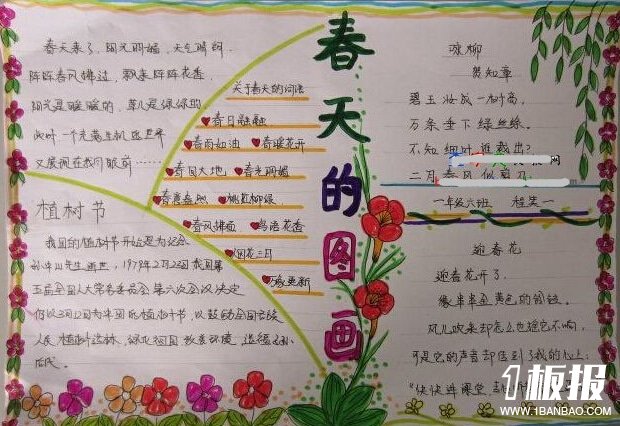 春天的图画
春天来了，阳光明媚，天气晴朗
阵阵春风拂过，飘来阵阵花香
阳光是暖暖的，草儿是绿绿的
此时一个充满生机的世界
又展现在我们眼前……
关于春天的词语
春日融融
春雨如油 春暖花开
春回大地 春光明媚
春意盎然 桃红柳绿
春风拂面 鸟语花香
烟花三月
万象更新
植树节
我国的植树节开始是为纪念
孙中山先生逝世，1979年2月23日我国第
五届全国人大常务委员会第六次会议决定
仍以3月12日为中国的植树节，以鼓动全国各族
人民植树造林，绿化祖国
咏柳
贺知章
碧玉妆成一树高，
万条垂下绿丝绦。
不知细叶谁裁出？
二月春风似剪刀
一年级六班
迎春花
迎春花开了，
像串串金黄色的铃铛。
风儿吹来
可是它的声音却传到了我的心上：
1板报
WWW.1BANBAO.COM